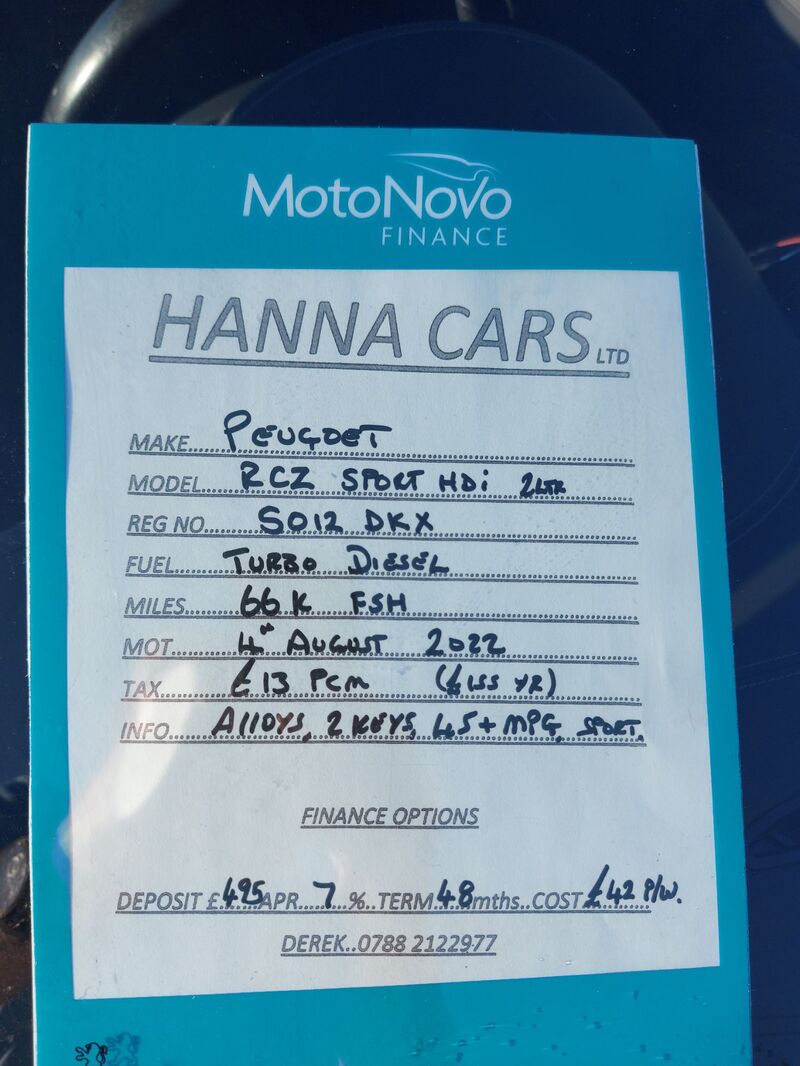 MotoNovo
FINANCE
HANNA CARS LTD
MAKE....PEUGOET
MODEL....RCZ SPORT HDi 2LTR
REG NO....SO12 DKX
FUEL....TURBO DIESEL
MILES....66K FSH
MOT....4TH AUGUST 2022
TAX....£13 PCM (£155 YR)
INFO....ALLOYS, 2 KEYS, 45+ MPG, SPORT.
FINANCE OPTIONS
DEPOSIT £..495..APR...7...%..TERM 48 mths..COST £42 P/W.
DEREK..0788 2122977